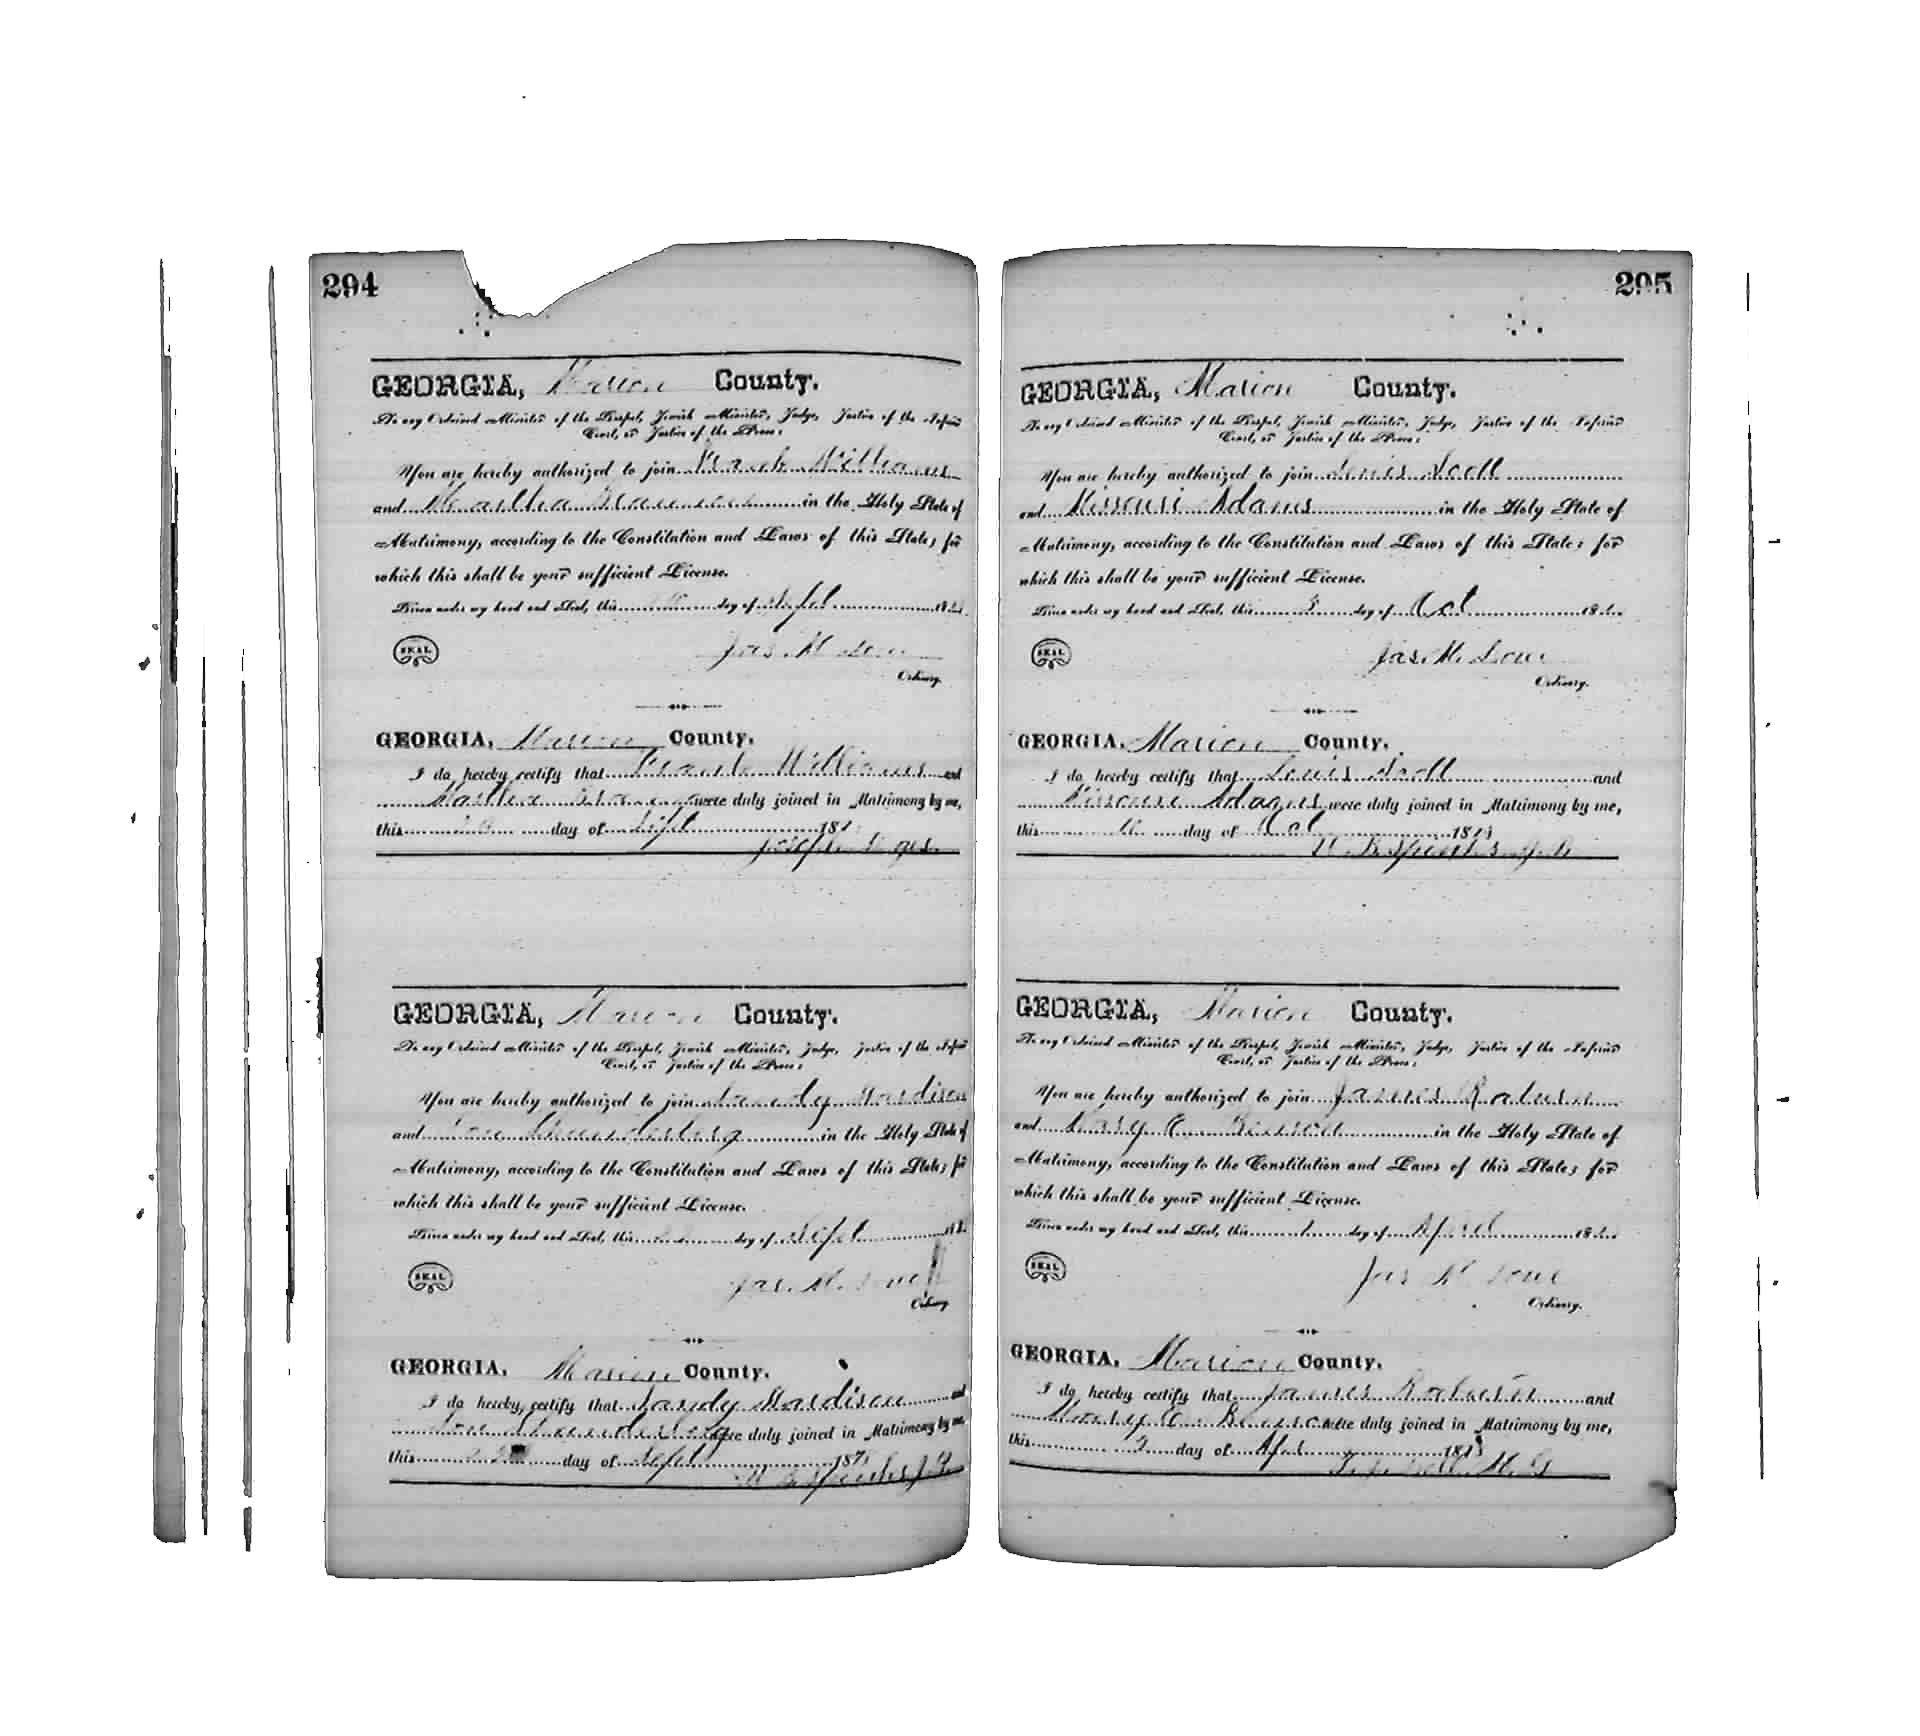 294
GEORGIA, Marion County.
To any Ordained Minister of the Gospel, Jewish Minister, Judge, Justice of the Inferior
Court, or Justice of the Peace:
You are hereby authorized to join Frank Williams
and Martha in the Holy State of
Matrimony, according to the Constitution and Laws of this State; for
which this shall be your sufficient License.
Given under my hand and Seal, this day of Sept 18
SEAL
Jas. M. Lowe
Ordinary.
GEORGIA, Marion County.
I do hereby certify that Frank Williams and
Martha were duly joined in Matrimony by me,
this day of Sept 187
Joseph
GEORGIA, Marion County.
To any Ordained Minister of the Gospel, Jewish Minister, Judge, Justice of the Inferior
Court, or Justice of the Peace:
You are hereby authorized to join Sandy Hardison
and Lou in the Holy State of
Matrimony, according to the Constitution and Laws of this State; for
which this shall be your sufficient License.
Given under my hand and Seal, this day of Sept 18
SEAL
Jas. M. Lowe
Ordinary.
GEORGIA, Marion County.
I do hereby certify that Sandy Hardison and
Lou were duly joined in Matrimony by me,
this 22 day of Sept 187
W. B. Spinks J.P.
295
GEORGIA, Marion County.
To any Ordained Minister of the Gospel, Jewish Minister, Judge, Justice of the Inferior
Court, or Justice of the Peace:
You are hereby authorized to join Louis Scott
and Missouri Adams in the Holy State of
Matrimony, according to the Constitution and Laws of this State; for
which this shall be your sufficient License.
Given under my hand and Seal, this 3 day of Oct 18
SEAL
Jas. M. Lowe
Ordinary.
GEORGIA, Marion County.
I do hereby certify that Louis Scott and
Missouri Adams were duly joined in Matrimony by me,
this day of Oct 1873
W. B. Spinks J.P.
GEORGIA, Marion County.
To any Ordained Minister of the Gospel, Jewish Minister, Judge, Justice of the Inferior
Court, or Justice of the Peace:
You are hereby authorized to join James Raburn
and Mary A. in the Holy State of
Matrimony, according to the Constitution and Laws of this State; for
which this shall be your sufficient License.
Given under my hand and Seal, this 1 day of April 18
SEAL
Jas M Lowe
Ordinary.
GEORGIA, Marion County.
I do hereby certify that James Raburn and
Mary A. were duly joined in Matrimony by me,
this 2 day of Apl 1873
M. G